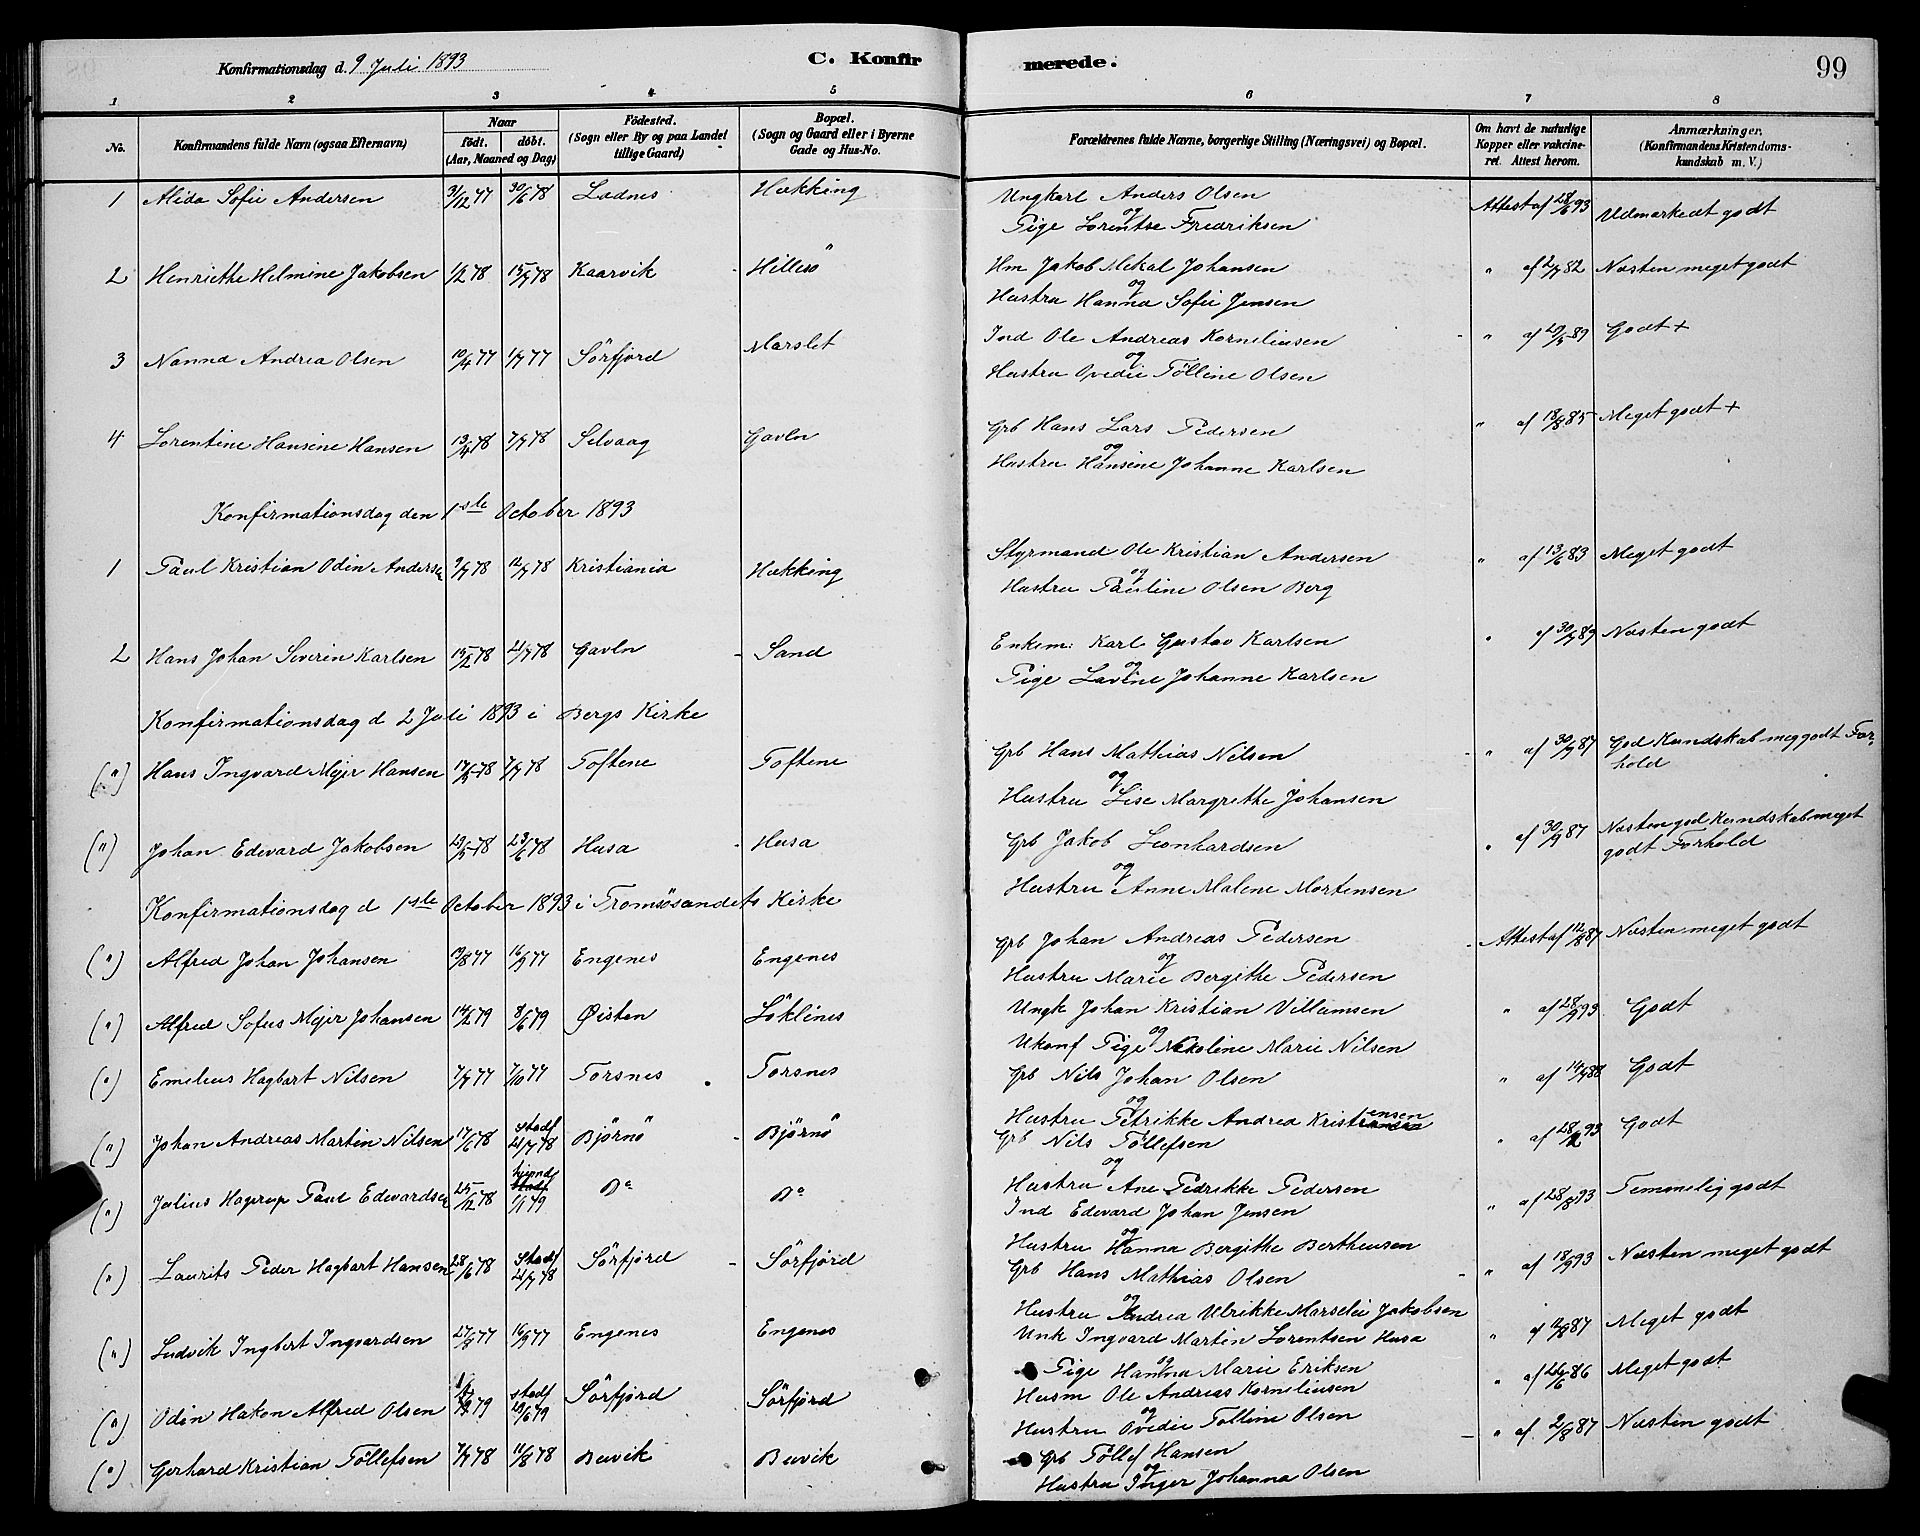 Konfirmationsdag d. 9 Juli 1893
C. Konfirmerede.
99
1 2 3 4 5 6 7 8
No.
Konfirmandens fulde Navn (ogsaa Efternavn)
Naar
født. døbt.
(Aar, Maaned og Dag)
Fødested.
(Sogn eller By og paa Landet
tillige Gaard)
Bopæl.
(Sogn og Gaard eller i Byerne
Gade og Hus-No.
Forældrenes fulde Navne, borgerlige Stilling (Næringsvei) og Bopæl.
Om havt de naturlige
Kopper eller vakcine-
ret. Attest herom.
Anmærkninger.
(Konfirmandens Kristendoms-
kundskab m. V.)
1 Alida Sofie Andersen 3/12 77 30/6 78 Ladnes Hækking Ungkarl Anders Olsen Attest af 28/6 93 Udmærkedt godt
og
Pige Lorentse Fredriksen
2 Henriette Helmine Jakobsen 1/2 78 15/7 78 Kaarvik Hillesö Hm Jakob Mekal Johansen " af 2/7 82 Næsten meget godt
og
Hustru Hanna Sofie Jensen
3 Nanna Andrea Olsen 10/4 77 1/7 77 Sörfjord Marslet Ind Ole Andreas Korneliusen " af 29/5 89 Godt +
og
Hustru Ovedie Tölline Olsen
4 Lorentine Hansine Hansen 13/4 78 7/7 78 Selvaag Gavln Grb Hans Lars Pedersen " af 18/8 85 Meget godt +
og
Hustru Hansine Johanne Karlsen
Konfirmationsdag den 1ste October 1893
1 Paul Kristian Odin Andersen 9/7 78 12/7 78 Kristiania Hækking Styrmand Ole Kristian Andersen " af 13/6 83 Meget godt
og
Hustru Pauline Olsen Berg
2 Hans Johan Severin Karlsen 15/2 78 21/7 78 Gavln Sand Enkem: Karl Gustav Karlsen " af 30/7 89 Næsten godt
og
Pige Lavine Johanne Karlsen
Konfirmationsdag d 2 Juli 1893 i Bergs Kirke
(") Hans Ingvard Mejer Hansen 17/5 78 7/7 78 Toftene Toftene Grb Hans Mathias Nilsen " af 30/9 87 God Kundskab meg godt For-
hold
og
Hustru Lise Margrethe Johansen
(") Johan Edevard Jakobsen 29/5 78 23/6 78 Husa Husa Grb Jakob Leonhardsen " af 30/9 87 Næsten god Kundskab meget
godt Forhold
og
Hustru Anne Malene Mortensen
Konfirmationsdag d 1ste October 1893 i Tromsösundets Kirke
(") Alfred Johan Johansen 19/8 77 16/9 77 Engenes Engenes Grb Johan Andreas Pedersen Attest af 12/8 87 Næsten meget godt
og
Hustru Marie Bergithe Pedersen
(") Alfred Sofus Mejer Johansen 14/2 79 8/6 79 Øisten Löklines Ungk Johan Kristian Villumsen " af 28/9 93 Godt
og
Ukonf Pige Nikoline Marie Nilsen
(") Emelius Hagbart Nilsen 7/7 77 7/10 77 Torsnes Torsnes Grb Nils Johan Olsen " af 14/7 88 Godt
og
Hustru Petrikke Andrea Kristensen
(") Johan Andreas Martin Nilsen 17/6 78 stadf 21/7 78 Björnö Björnö Grb Nils Töllefsen " af 28/2 93 Godt
og
Hustru Ane Pedrikke Pedersen
(") Julius Hagerup Paul Edevardsen 25/12 78 hjemd 1/1 79 Do Do Ind Edevard Johan Jensen " af 28/8 93 Temmelig godt
og
Hustru Hanna Bergithe Bertheusen
(") Laurits Peder Hagbart Hansen 28/6 78 Stadf 21/7 78 Sörfjord Sörfjord Grb Hans Mathias Olsen " af 18/9 93 Næsten meget godt
og
Hustru Andrea Ulrikke Marselie Jakobsen
(") Ludvik Ingbert Ingvardsen 27/8 77 16/9 77 Engenes Engenes Unk Ingvard Martin Lorentsen Husa " af 12/8 87 Meget godt
og
Pige Hanna Marie Eriksen
(") Odin Hakon Alfred Olsen 79 stadf 29/6 79 Sörfjord Sörfjord Husm Ole Andreas Korneliusen " af 26/6 86 Meget godt
og
Hustru Ovedie Tolline Olsen
(") Gerhard Kristian Töllefsen 7/7 78 11/8 78 Buvik Buvik Grb Töllef Hansen " af 2/8 87 Næsten godt
og
Hustru Inger Johanna Olsen